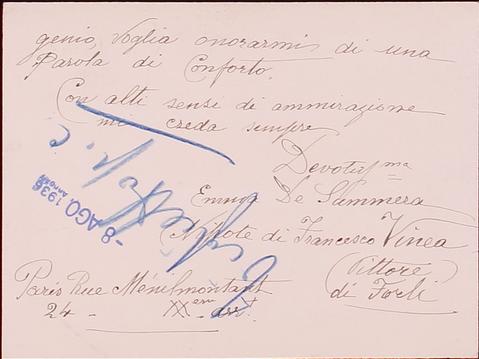 genio, Voglia onorarmi di una
Parola di Conforto.
Con alti sensi di ammirazione
mi creda sempre
Devotissma
Emma De Sammera
(Nipote di Francesco Vinea
(Pittore
di Forlì
Paris Rue Ménilmontant
24 - XXem arr.t
-8 AGO. 1936